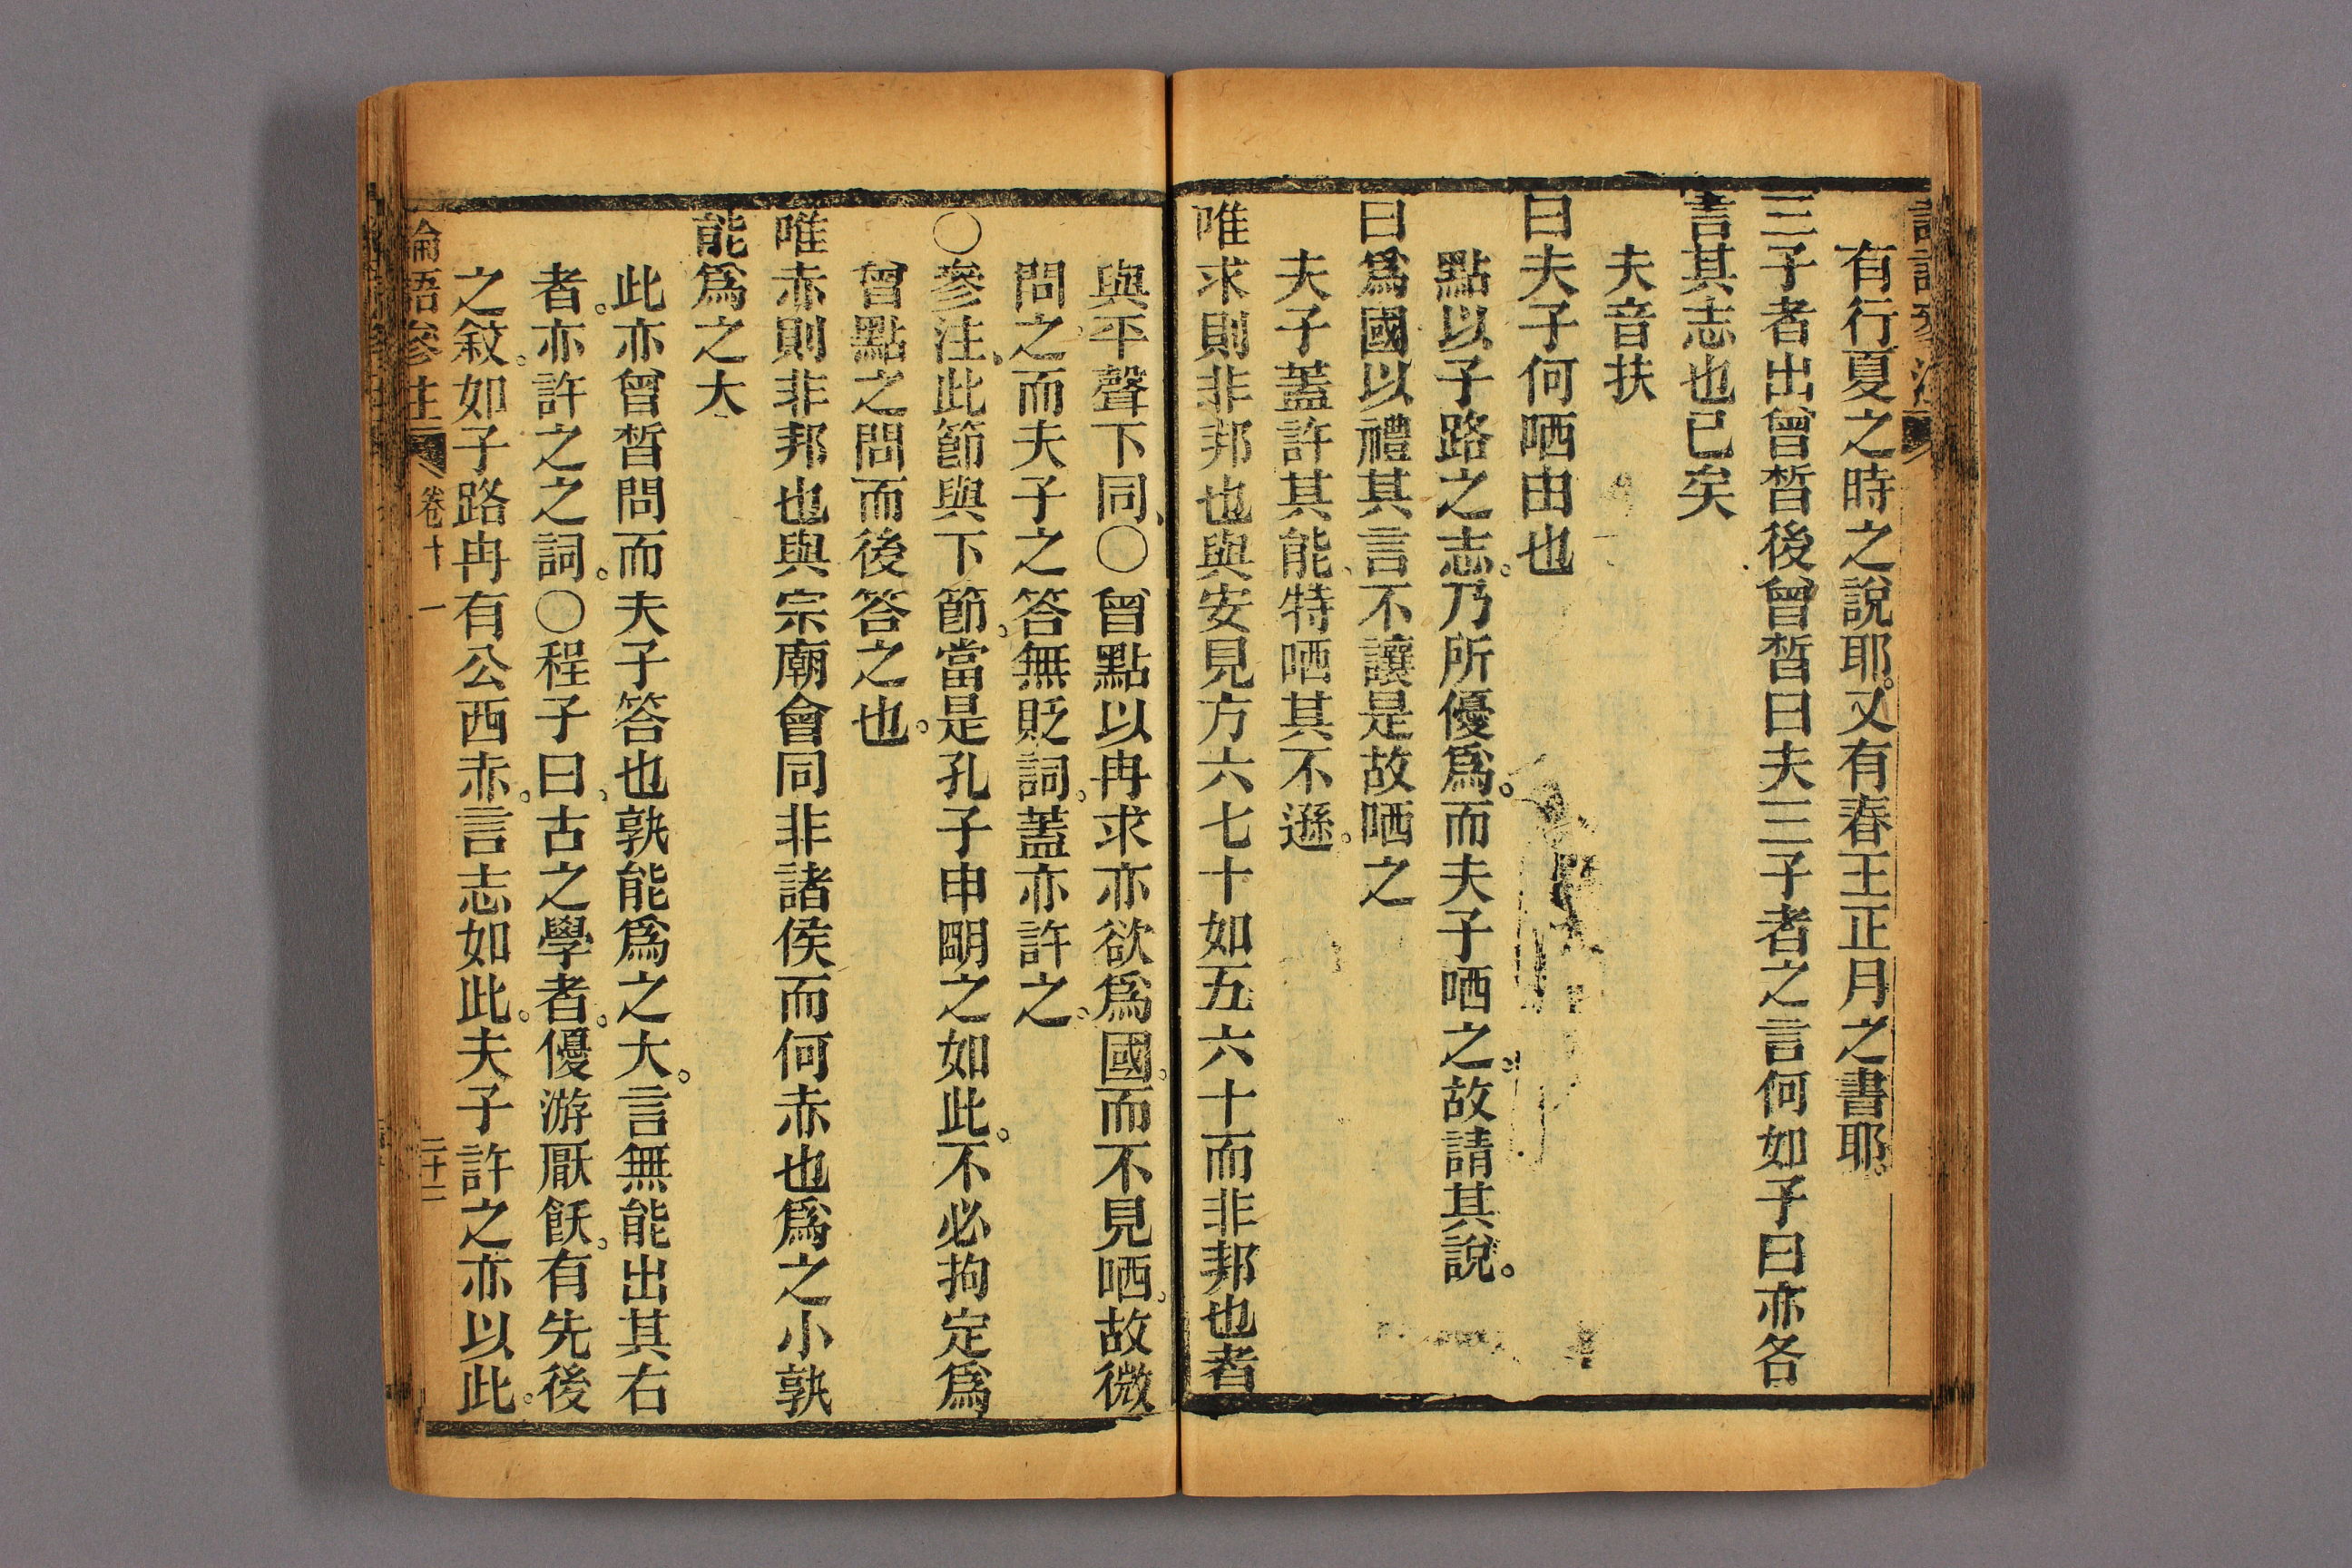 有行夏之時之說耶。又有春王正月之書耶。
三子者出曾晳後曾晳曰夫三子者之言何如子曰亦各
言其志也已矣
夫音扶
曰夫子何哂由也
點以子路之志。乃所優爲。而夫子哂之。故請其說。
曰爲國以禮其言不讓是故哂之
夫子蓋許其能、特哂其不遜。
唯求則非邦也與安見方六七十如五六十而非邦也者
與平聲下同、〇曾點以冉求亦欲爲國。而不見哂。故微
問之。而夫子之答無貶詞。蓋亦許之。
〇參注、此節與下節。當是孔子申明之如此。不必拘定爲
曾點之問而後答之也。
唯赤則非邦也與宗廟會同非諸侯而何赤也爲之小孰
能爲之大
此亦曾晳問而夫子答也孰能爲之大。言無能出其右
者。亦許之之詞。〇程子曰、古之學者。優游厭飫。有先後
之敘。如子路冉有公西赤。言志如此。夫子許之亦以此。
論語參注 卷十一 二十二